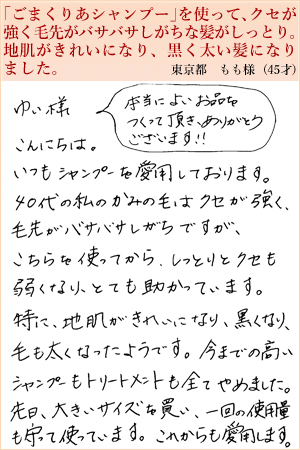 「ごまくりあシャンプー」を使って、クセが
強く毛先がバサバサしがちな髪がしっとり。
地肌がきれいになり、黒く太い髪になり
ました。
東京都　もも様（45才）
ゆい様
本当によいお品を
つくって頂き、ありがとう
ございます!!
こんにちは。
いつもシャンプーを愛用しております。
40代の私のかみの毛はクセが強く、
毛先がバサバサしがちですが、
こちらを使ってから、しっとりとクセも
弱くなり、とても助かっています。
特に、地肌がきれいになり、黒くなり、
毛も太くなったようです。今までの高い
シャンプーもトリートメントも全てやめました。
先日、大きいサイズを買い、一回の使用量
も守って使っています。これからも愛用します。